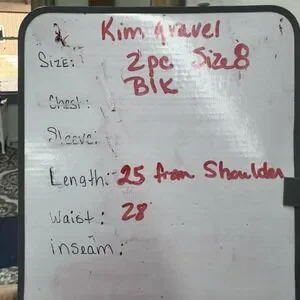 Kim Gravel
Size: 2pc Size 8
Blk
Chest:
Sleeve:
Length: 25 from Shoulder
Waist: 28
inseam: